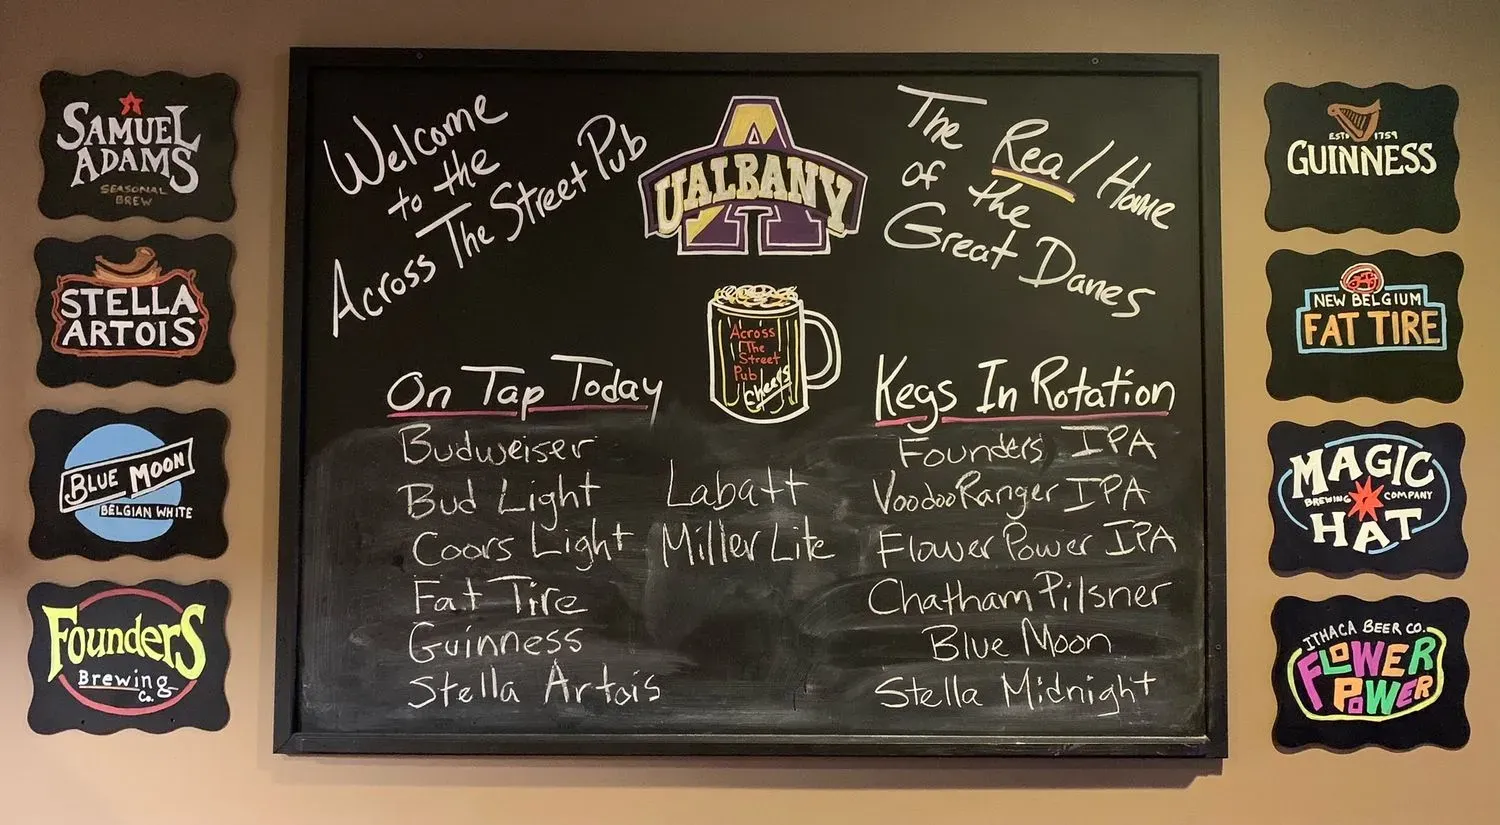 SAMUEL
ADAMS
SEASONAL
BREW
STELLA
ARTOIS
BLUE MOON
BELGIAN WHITE
Founders
Brewing
Co.
Welcome
to the
Across The Street Pub
UALBANY
The Real Home
of the
Great Danes
Across
The
Street
Pub
cheers
On Tap Today
Budweiser
Bud Light
Coors Light
Fat Tire
Guinness
Stella Artois
Labatt
Miller Lite
Kegs In Rotation
Founders IPA
VoodooRanger IPA
Flower Power IPA
Chatham Pilsner
Blue Moon
Stella Midnight
ESTD 1759
GUINNESS
NEW BELGIUM
FAT TIRE
MAGIC
BREWING COMPANY
HAT
ITHACA BEER CO.
FLOWER
POWER